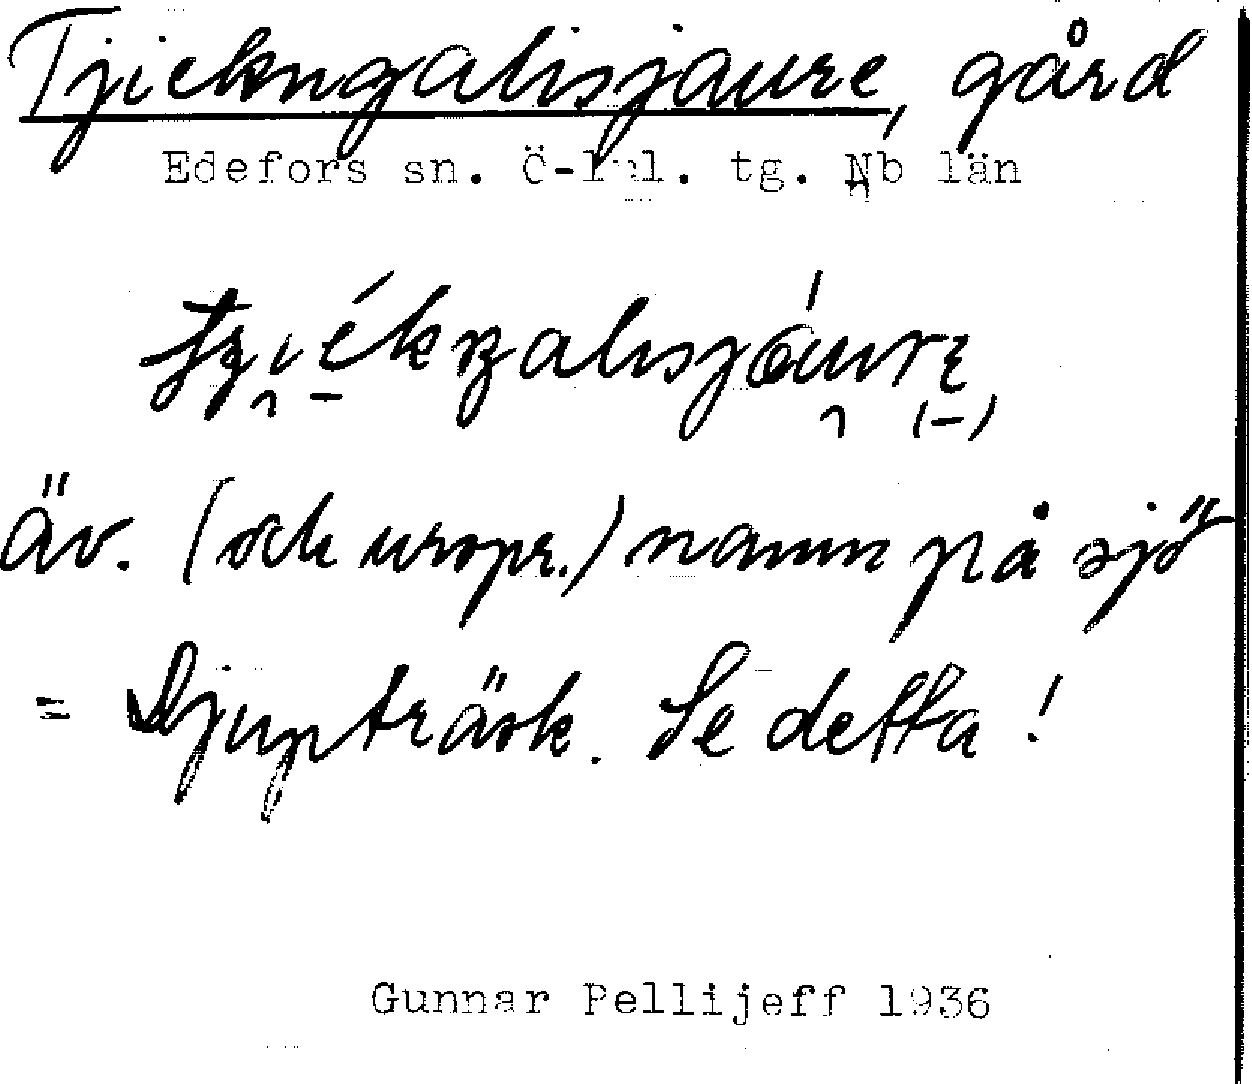 Tjiekngalisjaure, gård
Edefors sn. Ö-kal. tg. Nb län
äv. (och urspr.) namn på sjö
= Djupträsk. Se detta!
Gunnar Pellijeff 1936